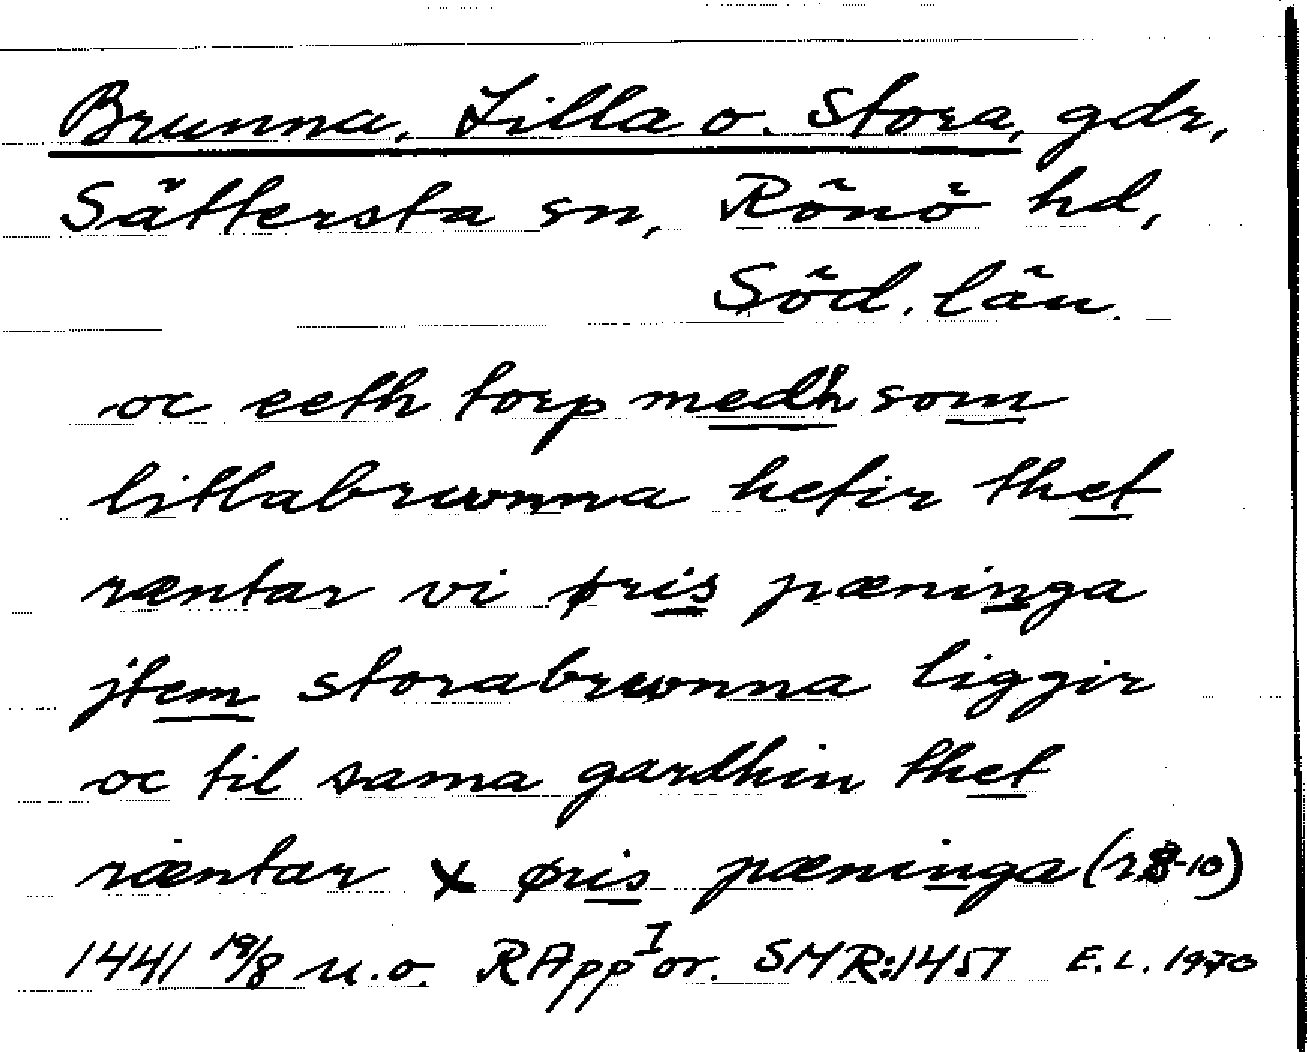 Brunna, Lilla o. Stora, gdr,
Sättersta sn, Rönö hd,
Söd. län.
oc eeth torp medh som
litlabrwnna hetir thet
ræntar vi øris pæninga
jtem storabrwnna liggir
oc til sama gardhin thet
ræntar x øris pæninga (r 8-10)
1441 19/8 u.o. RApp I or. SMR:1451 E.L. 1970